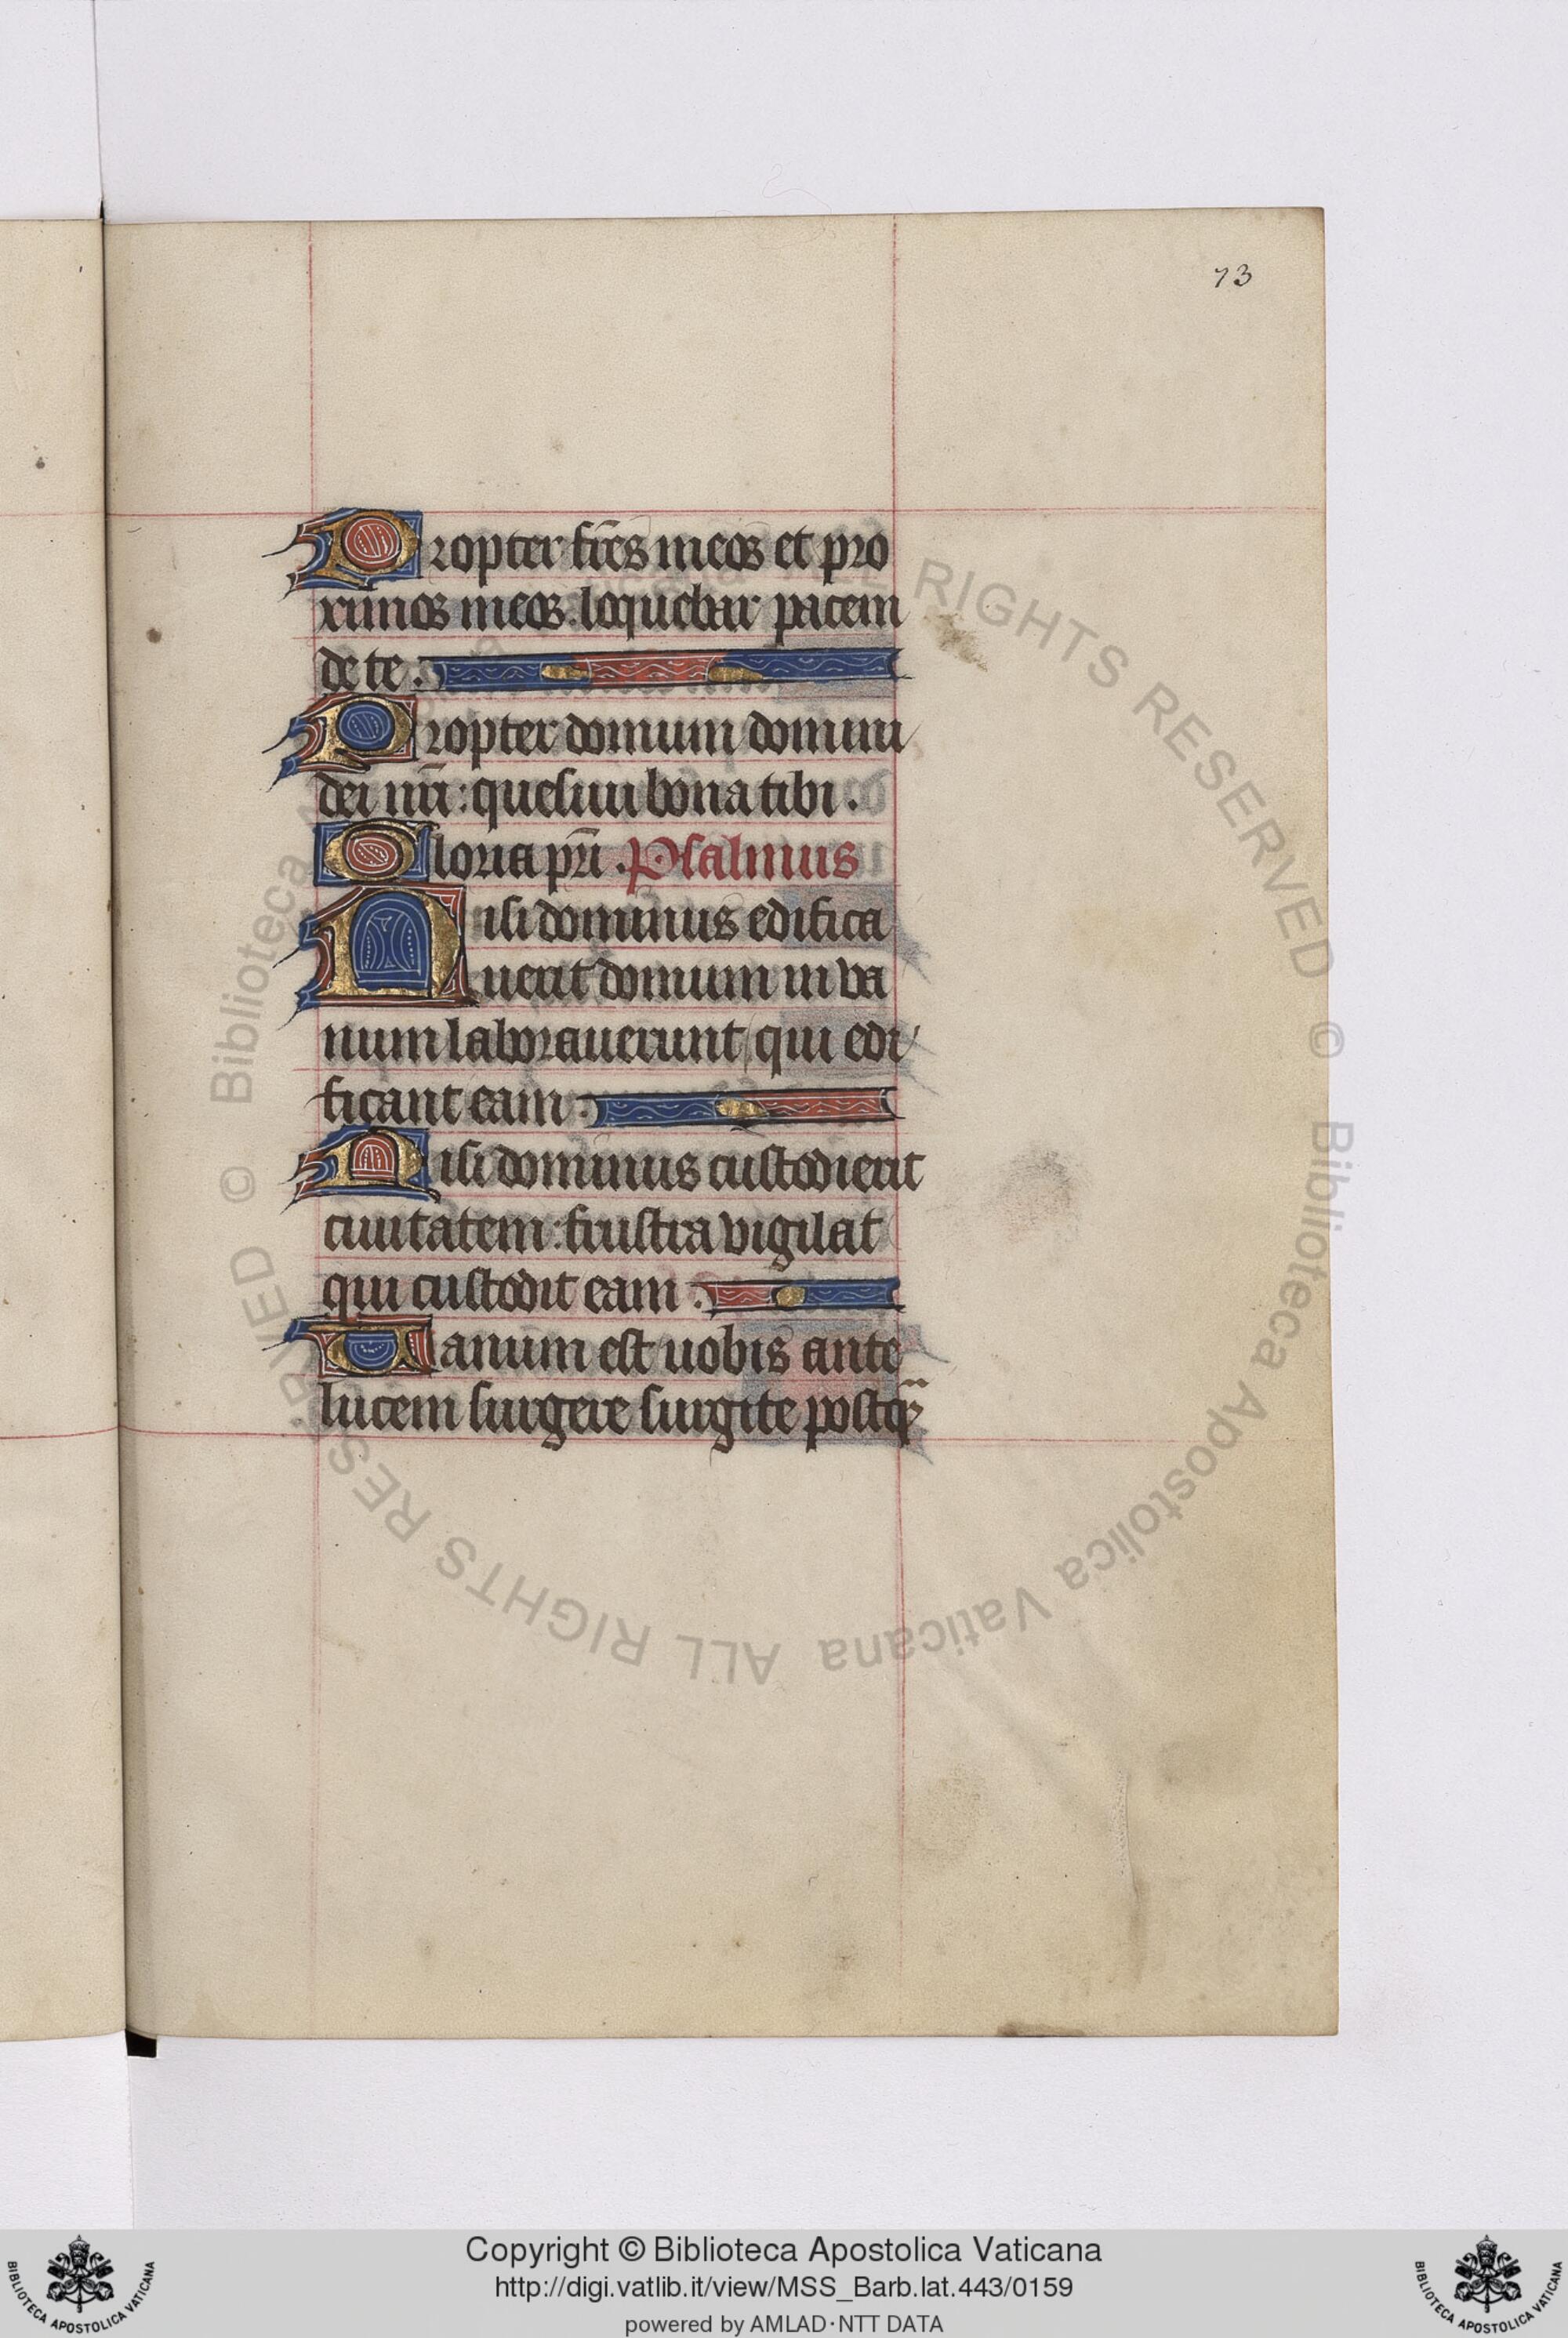 73
Propter fr̄es meos et pro
ximos meos. loquebar pacem
de te.
Propter domum domini
dei nr̄i: quesiui bona tibi.
Gloria pr̄i. Psalmus
Nisi dominus edifica
uerit domum in va
num laborauerunt qui edi
ficant eam.
Nisi dominus custodierit
ciuitatem: frustra vigilat
qui custodit eam.
Vanum est uobis ante
lucem surgere surgite postq̄
© Biblioteca Apostolica Vaticana ALL RIGHTS RESERVED © Biblioteca Apostolica Vaticana ALL RIGHTS RESERVED
Copyright © Biblioteca Apostolica Vaticana
http://digi.vatlib.it/view/MSS_Barb.lat.443/0159
powered by AMLAD·NTT DATA
BIBLIOTECA APOSTOLICA VATICANA
BIBLIOTECA APOSTOLICA VATICANA